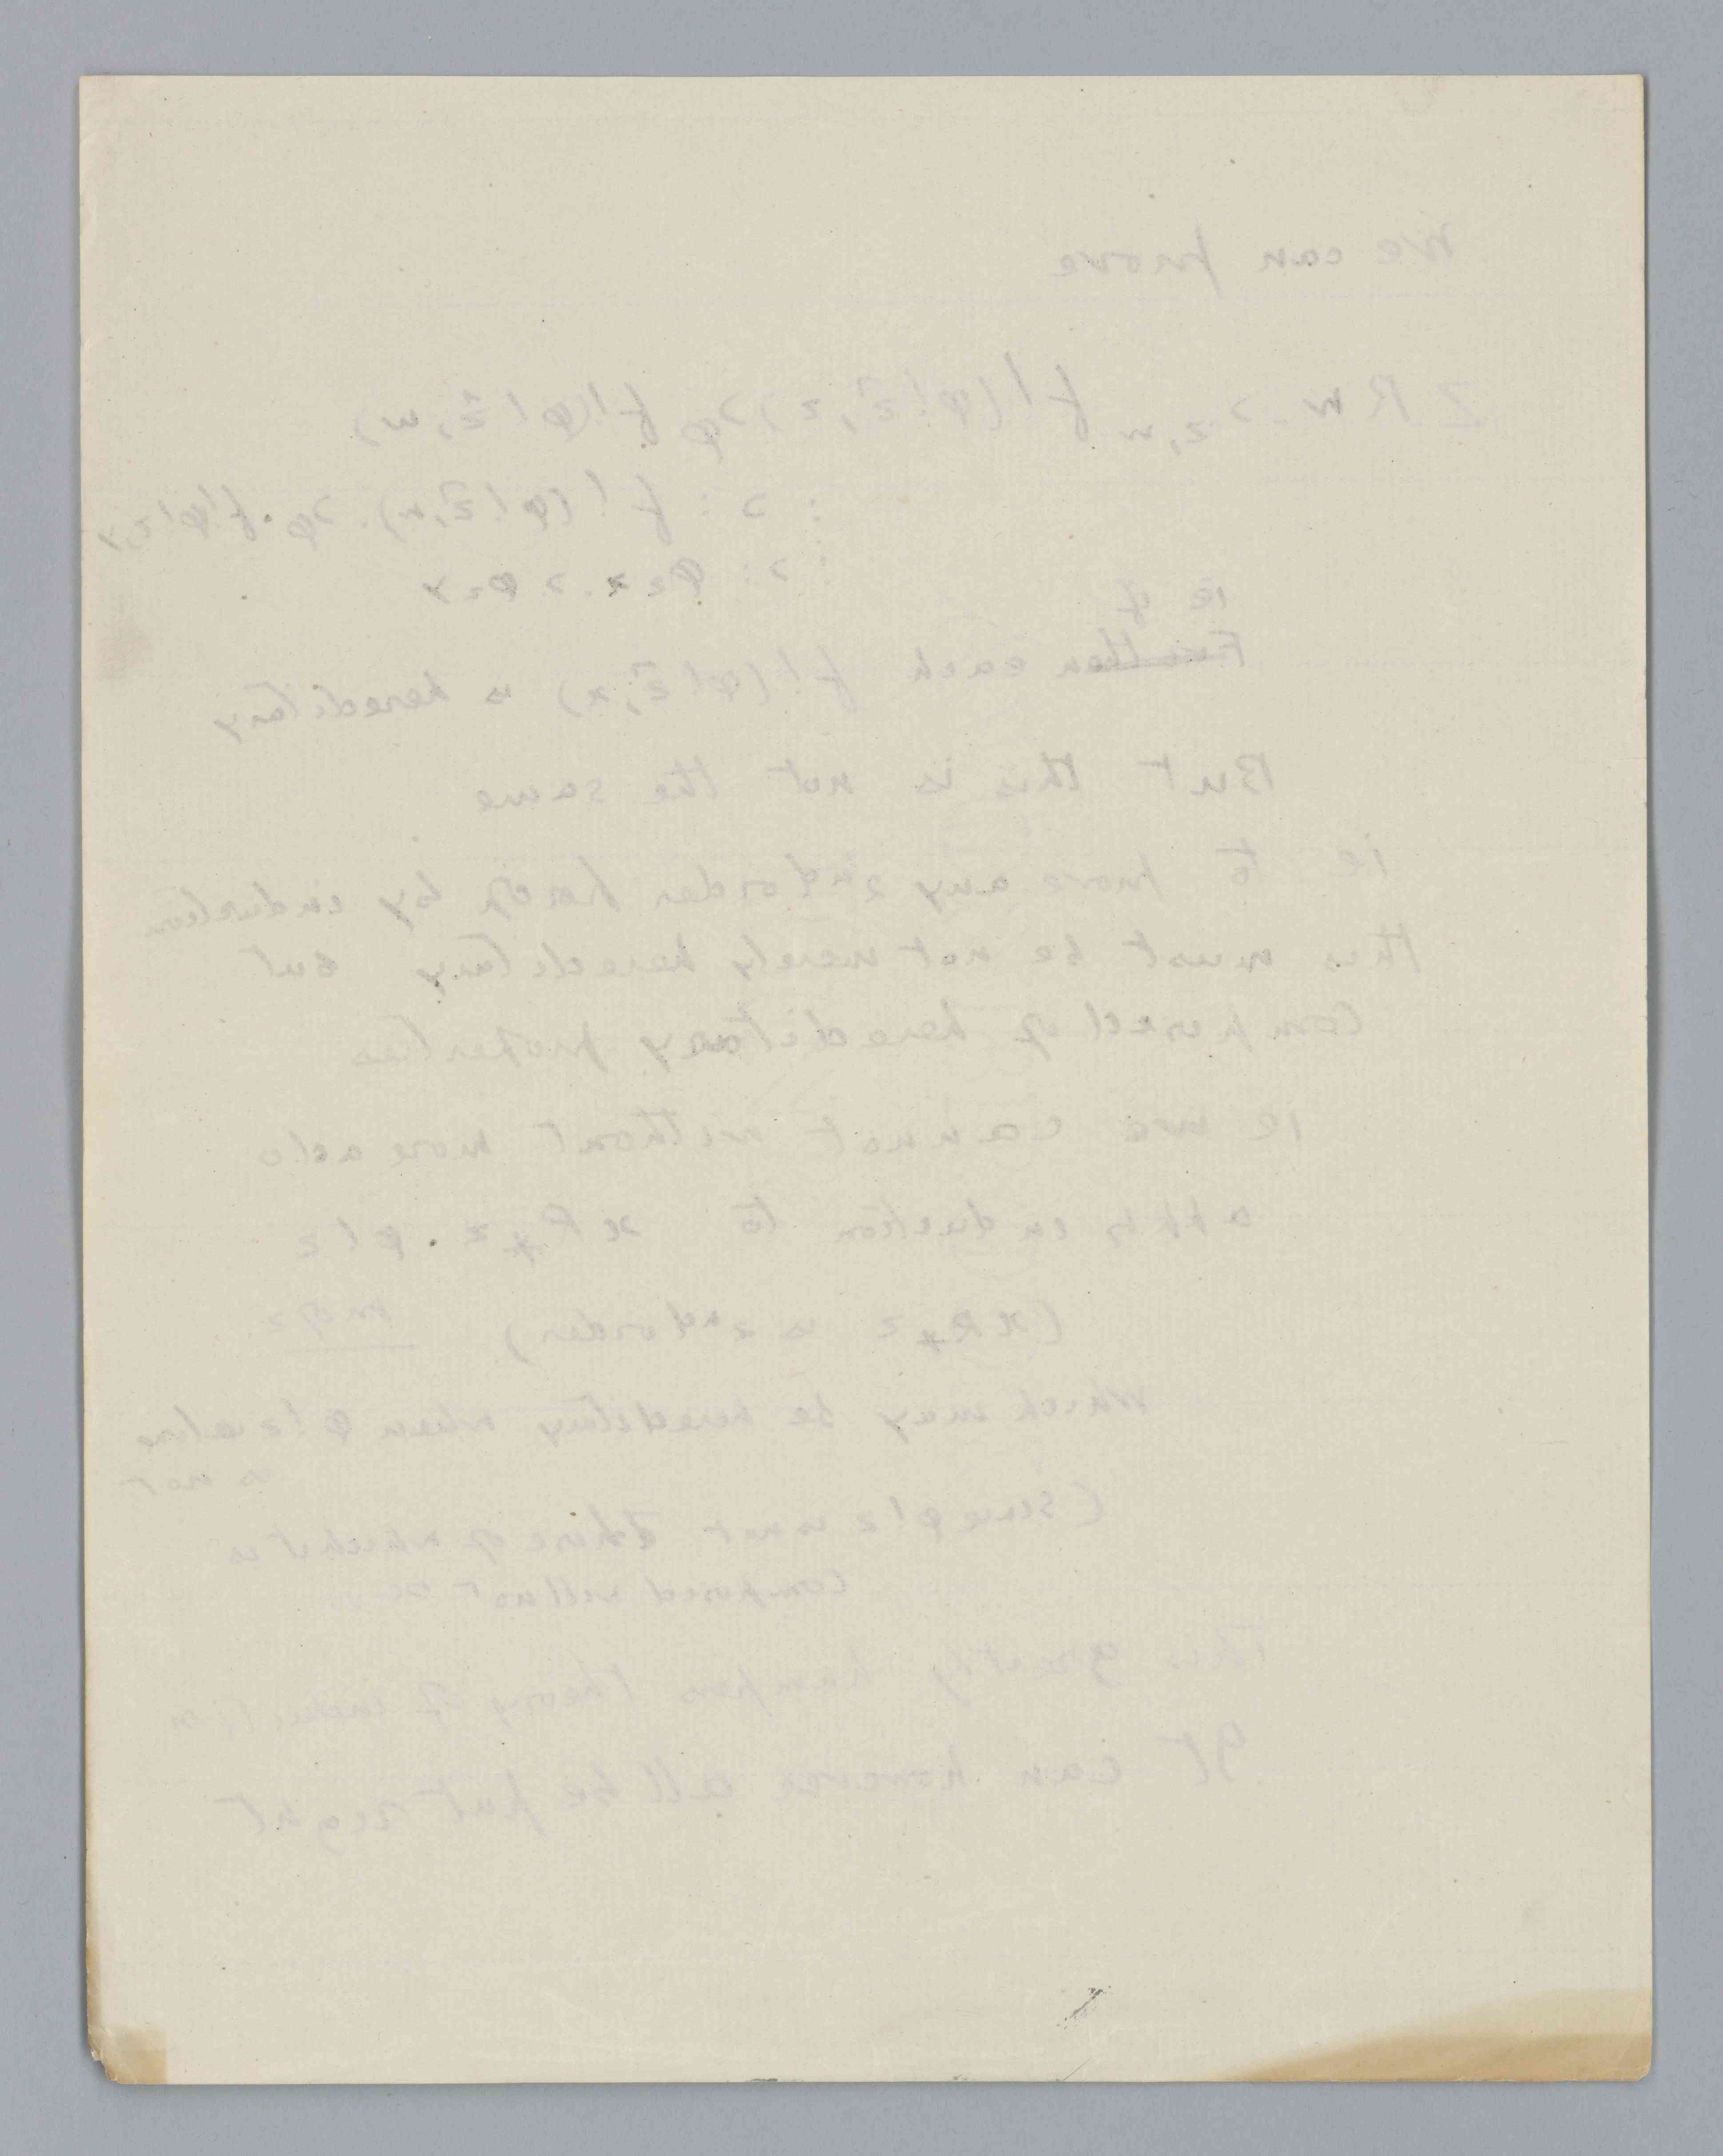 We can prove
zRw . ⊃ z,w f!(φ!ẑ,z) ⊃φ f!(φ!ẑ,w)
: ⊃ : f!(φ!ẑ,x) . ⊃φ . f!φ!ẑ,y
: ⊃ : φ2x . ⊃ φ2y
ie if
each f!(φ!ẑ,x) is hereditary
But this is not the same
ie to prove any 2nd order by induction
this must be not merely hereditary but
composed of hereditary properties
ie we cannot without more ado
apply induction to xR*z . φ!z
(xR*z is 2nd order)
Which may be hereditary when φ!z alone
is not
(since φ!z is not those of which it is
composed will not be
This greatly hampers theory of induction
It can however all be put right